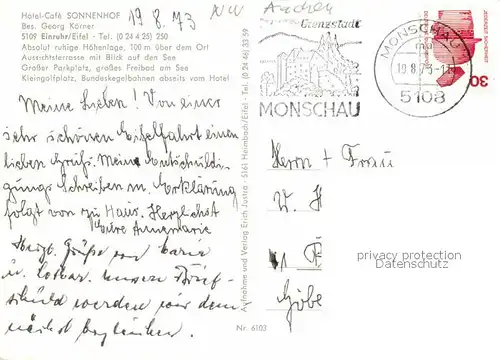 Hotel-Café SONNENHOF
Bes. Georg Körner
5109 Einruhr/Eifel - Tel. (0 24 25) 250
Absolut ruhige Höhenlage, 100 m über dem Ort
Aussichtsterrasse mit Blick auf den See
Großer Parkplatz, großes Freibad am See
Kleingolfplatz, Bundeskegelbahnen abseits vom Hotel
19 8. 73
NW
Aachen
Meine Lieben! Von einer
sehr schönen Eifelfahrt einen
lieben Gruß. Meine Entschuldi-
gungs Schreiben m. Erklärung
folgt von zu Haus. Herzlichst
Eure Annemarie
Herzl. Grüße von
u. Lothar. Unsere Brief-
schuld werden wir dem-
nächst begleichen.
Aufnahme und Verlag Erich Justra - 5161 Heimbach/Eifel - Tel. (0 24 46) 33 59
Nr. 6103
Grenzstadt
MONSCHAU
MONSCHAU
19.8.73-1
5108
30
Herrn + Frau
W. H
Göbe
privacy protection
Datenschutz